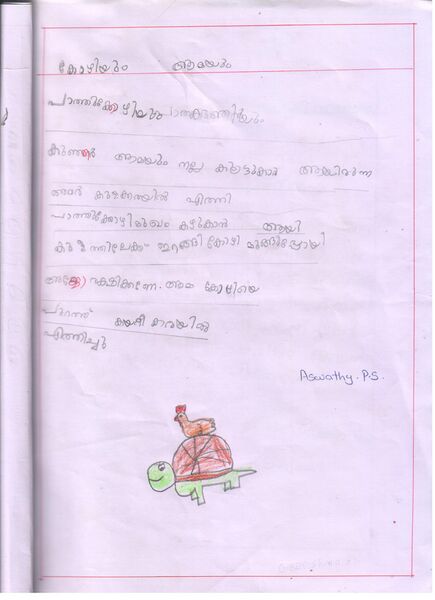 കോഴിയും ആമയും
പാത്തിക്കോഴിയും
കുഞ്ഞൻ ആമയും നല്ല കൂട്ടുകാർ ആയിരുന്ന
അവർ കുളക്കരയിൽ എത്തി
പാത്തിക്കോഴി മുഖം കഴുകാൻ ആയി
കുളത്തിലേക്ക് ഇറങ്ങി കോഴി മുങ്ങിപ്പോയി
അയ്യോ രക്ഷിക്കണേ. ആമ കോഴിയെ
പുറത്ത് കയറ്റി കരയിൽ
എത്തിച്ചു
Aswathy. P.S.